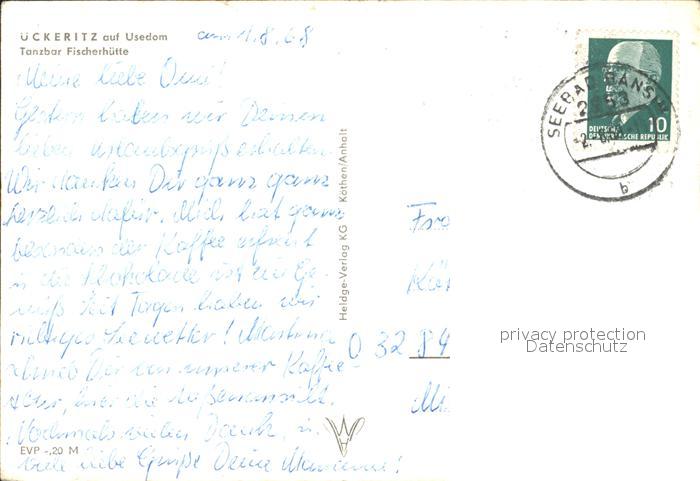 ÜCKERITZ auf Usedom
Tanzbar Fischerhütte
am 1.8.68
Meine liebe Omi!
Gestern haben wir Deinen
lieben Urlaubsgruß erhalten.
Wir danken Dir ganz ganz
herzlich dafür. Mich hat ganz
besonders der Kaffee erfreut
u. die Schokolade ist ein Ge-
nuß. Seit Tagen haben wir
richtiges Wetter! Martina
schrieb Dir von unserer Kaffee-
, hier die Außenansicht.
Nochmals vielen Dank, u.
viele liebe Grüße Deine Marianne!
EVP -,20 M
Heldge-Verlag KG Köthen/Anhalt
SEEBAD BANSIN
2253
b
DEUTSCHE
DEMOKRATISCHE REPUBLIK
10
Fra
Kö
0 3284
Mi
privacy protection
Datenschutz